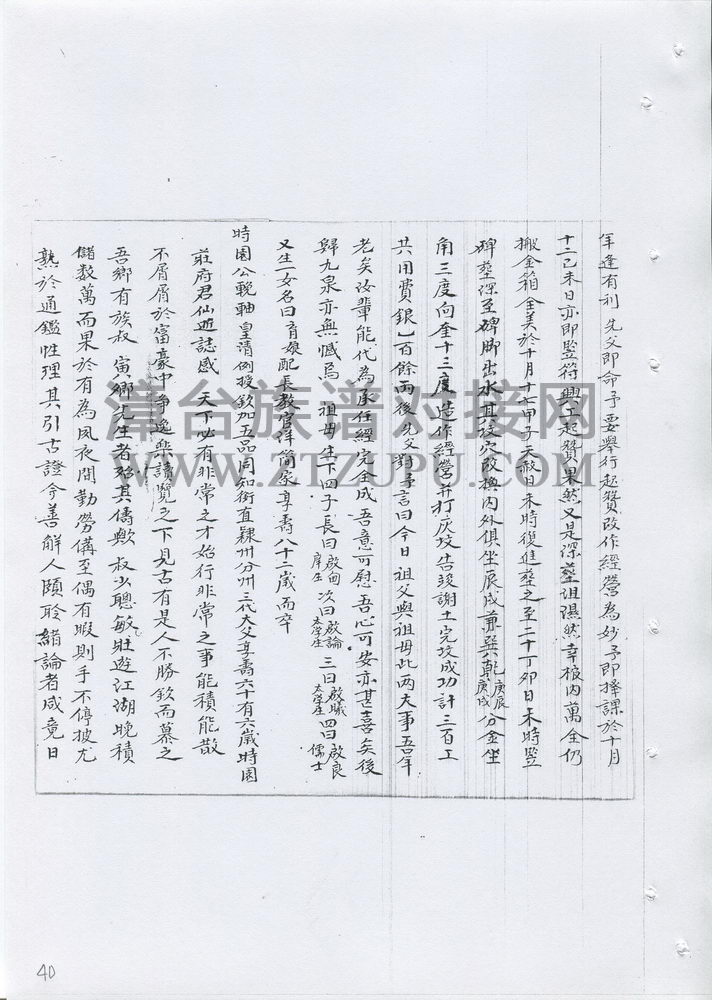 年逢有利 先父即命予要舉行起攢改作經營為妙予即擇課於十月
十二己未日亦即豎符興工起攢果然又是深塟沮隰然幸板內萬全仍
搬金箱全美於十月十七甲子天赦日未時復進塟之至二十丁卯日未時豎
碑塟深至碑脚出水其坟穴改換內外俱坐辰戌兼巽乾庚辰庚戌分金坐
角三度向奎十三度造作經營并打灰坟告竣謝土完坟成功計三百工
共用費銀一百餘兩後先父對予言曰今日 祖父與祖母此兩大事吾年
老矣汝輩能代為承任經完全成吾意可慰吾心可安亦甚喜矣後
歸九泉亦無憾焉 祖母生下四子長曰啟甸庠生次曰啟論太學生三曰啟曦太學生四曰啟良儒士
又生一女名曰育娘配長教官洋簡家享壽八十二歲而卒
時園公輓軸 皇清例授欽加五品同知銜直隸州分州三代大父享壽六十有六歲時園
莊府君仙遊誌感 天下必有非常之才始行非常之事能積能散
不屑屑於富豪中争逸樂讀覽之下見古有是人不勝欽而慕之
吾鄉有族叔 寅鄉先生者殆其儔歟 叔少聰敏壯遊江湖晚積
儲数萬而果於有為夙夜間勤勞備至偶有暇則手不停披尤
熟於通鑑性理其引古證今善解人頤聆緒論者咸竟日
津台族谱对接网
WWW.ZTZUPU.COM
40